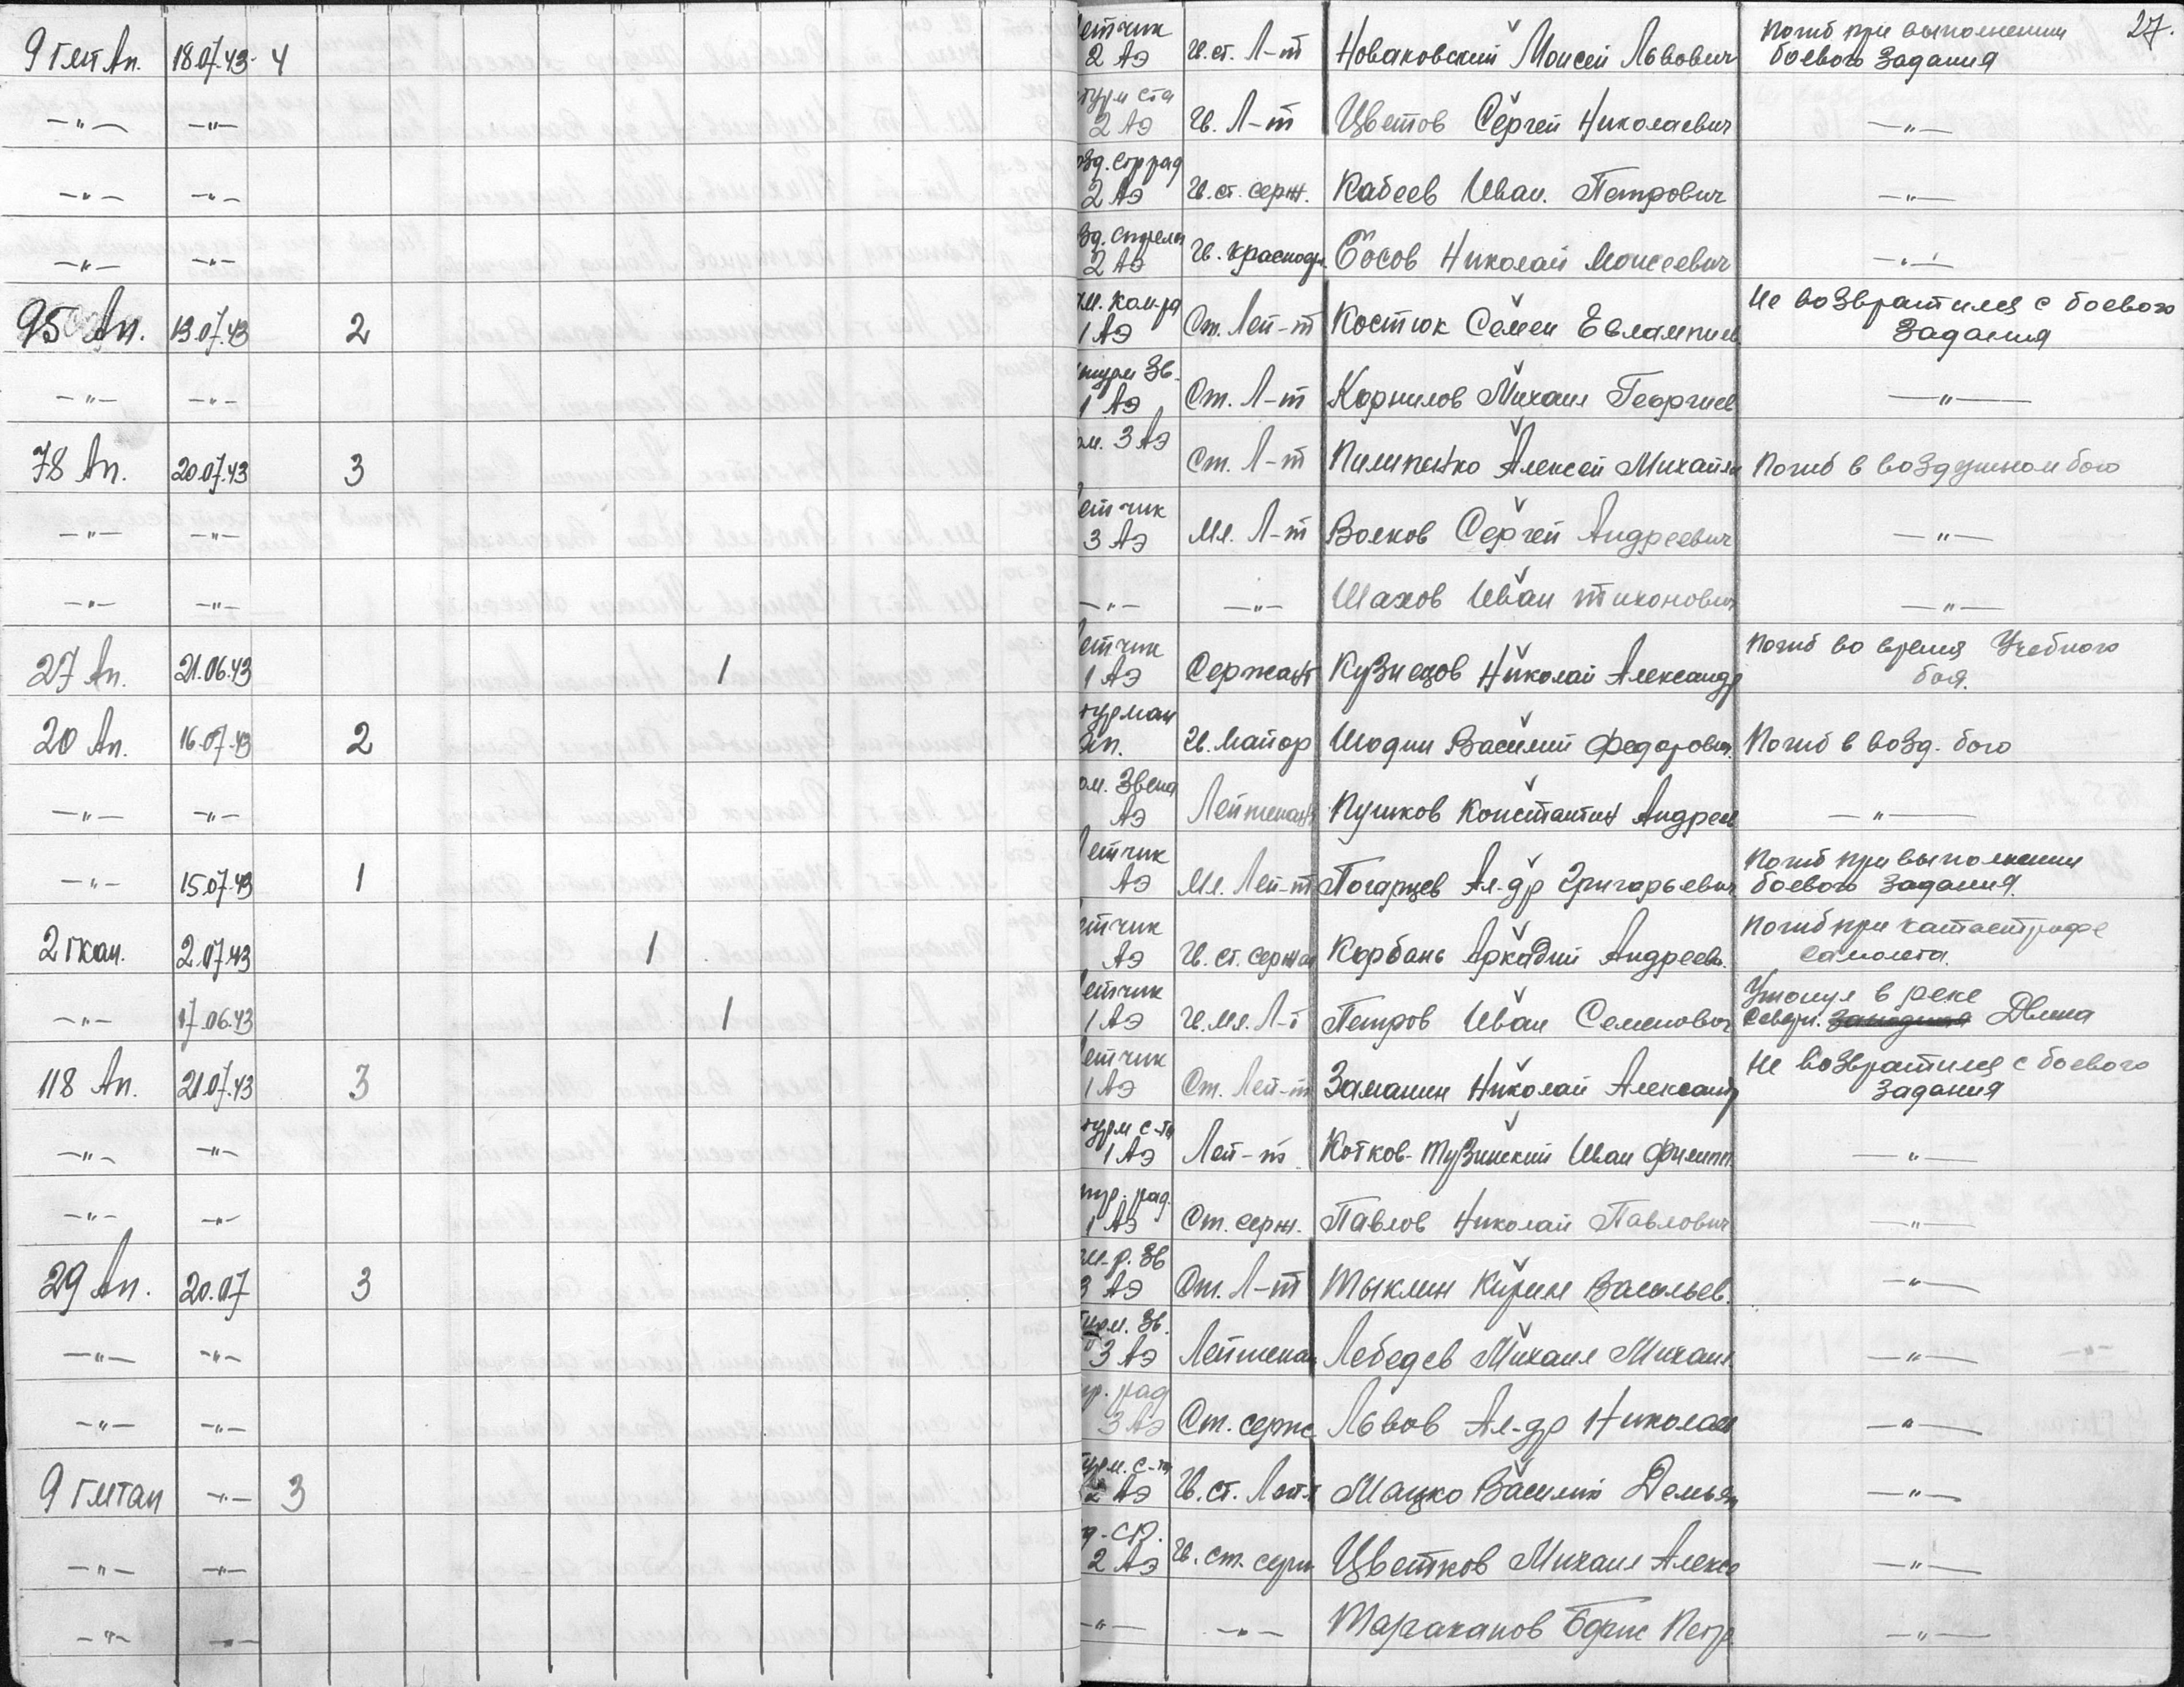 27.
9 гмт Ап. 18.07.43. 4 етчик 2 АЭ Гв. ст. Л-т Новаковский Моисей Львович Погиб при выполнении
боевого задания
-"- -"- турм с-та 2 АЭ Гв. Л-т Цветов Сергей Николаевич -"-
-"- -"- озд. стр рад 2 АЭ Гв. ст. серж. Кабеев Иван. Петрович -"-
-"- -"- зд. стрелк 2 АЭ Гв. красноар. Босов Николай Моисеевич -"-
95 Ап. 19.07.43 2 ам. ком-ра 1 АЭ Ст. Лей-т Костюк Семен Евлампиев Не возвратился с боевого
задания
-"- -"- турм Зв. 1 АЭ Ст. Л-т Корнилов Михаил Георгиев -"-
78 Ап. 20.07.43 3 ом. 3 АЭ Ст. Л-т Пилипенко Алексей Михайл Погиб в воздушном бою
-"- -"- етчик 3 АЭ Мл. Л-т Волков Сергей Андреевич -"-
-"- -"- -"- -"- Шахов Иван Тихонович -"-
27 Ап. 21.06.43 1 етчик 1 АЭ Сержант Кузнецов Николай Александр Погиб во время Учебного
боя.
20 Ап. 16.07.43 2 турман Ап. Гв. Майор Шодин Василий Федорович. Погиб в возд. бою
-"- -"- ом. Звена АЭ Лейтенант Пушков Константин Андреев -"-
-"- 15.07.43 1 етчик АЭ Мл. Лей-т Погарцев Ал-др Григорьевич Погиб при выполнении
боевого задания.
2 гкап. 2.07.43 1 етчик АЭ Гв. ст. сержан Корбань Аркадий Андреев. Погиб при катастрофе
самолета.
-"- 17.06.43 1 етчик 1 АЭ Гв. мл. Л-т Петров Иван Семенович Утонул в реке
Северн. Западная Двина
118 Ап. 21.07.43 3 етчик 1 АЭ Ст. Лей-т Заманин Николай Александр Не возвратился с боевого
задания
-"- -"- турм с-та 1 АЭ Лей-т Котков-Тузинский Иван Филипп. -"-
-"- -"- тр. рад. 1 АЭ Ст. серж. Павлов Николай Павлович -"-
29 Ап. 20.07 3 м-р. Зв 3 АЭ Ст. Л-т Тыклин Кирилл Васильев. -"-
-"- -"- турм. Зв. 3 АЭ Лейтенан Лебедев Михаил Михаил -"-
-"- -"- тр. рад 3 АЭ Ст. серж. Львов Ал-др Николаев -"-
9 гмтап -"- 3 турм. с-та 2 АЭ Гв. ст. Лей-т Мацко Василий Демьян -"-
-"- -"- зд-ср. 2 АЭ Гв. ст. серж Цветков Михаил Алексе -"-
-"- -"- -"- -"- Тараканов Борис Петр. -"-